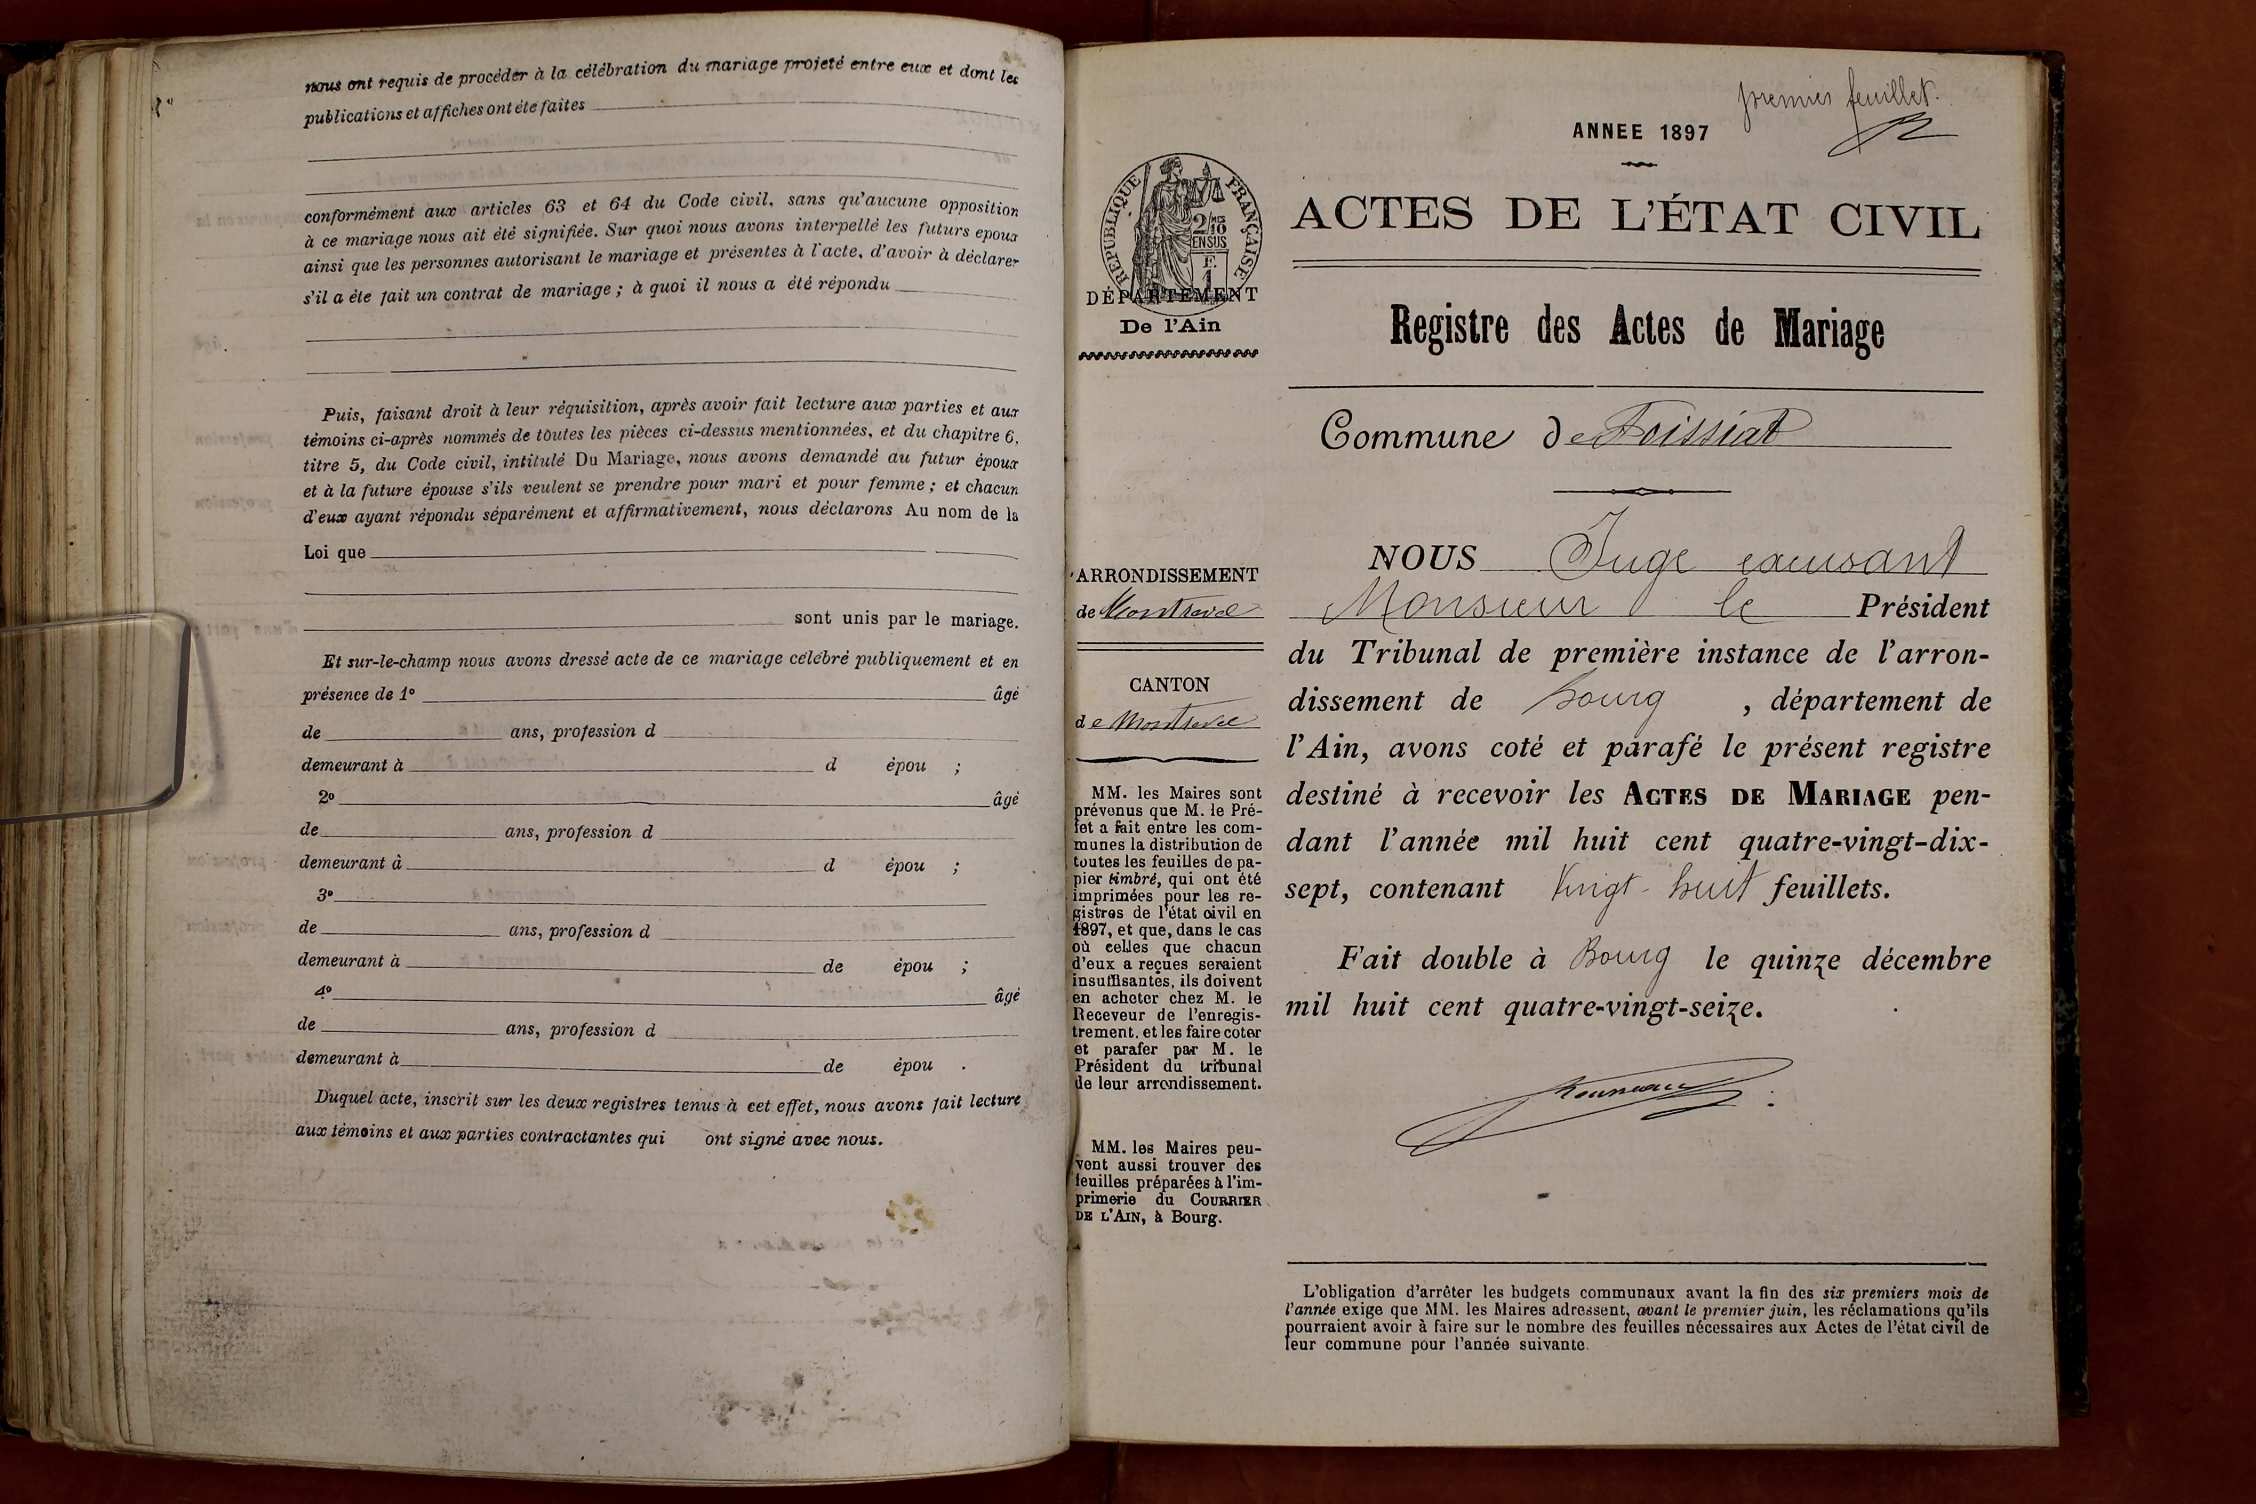 nous ont requis de procéder à la célébration du mariage projeté entre eux et dont les
publications et affiches ont éte faites
conformément aux articles 63 et 64 du Code civil, sans qu'aucune opposition
à ce mariage nous ait été signifiée. Sur quoi nous avons interpellé les futurs epoux
ainsi que les personnes autorisant le mariage et présentes à l'acte, d'avoir à déclarer
s'il a éte fait un contrat de mariage ; à quoi il nous a été répondu
Puis, faisant droit à leur réquisition, après avoir fait lecture aux parties et aux
témoins ci-après nommés de toutes les pièces ci-dessus mentionnées, et du chapitre 6,
titre 5, du Code civil, intitulé Du Mariage, nous avons demandé au futur époux
et à la future épouse s'ils veulent se prendre pour mari et pour femme ; et chacun
d'eux ayant répondu séparément et affirmativement, nous déclarons Au nom de la
Loi que
sont unis par le mariage.
Et sur-le-champ nous avons dressé acte de ce mariage célébré publiquement et en
présence de 1º âgé
de ans, profession d
demeurant à d épou ;
2º âgé
de ans, profession d
demeurant à d épou ;
3º
de ans, profession d
demeurant à de épou ;
4º âgé
de ans, profession d
demeurant à de épou .
Duquel acte, inscrit sur les deux registres tenus à cet effet, nous avons fait lecture
aux témoins et aux parties contractantes qui ont signé avec nous.
premier feuillet.
ANNEE 1897
RÉPUBLIQUE FRANÇAISE
2/10
EN SUS
F.
1
DÉPARTEMENT
De l'Ain
ACTES DE L'ÉTAT CIVIL
Registre des Actes de Mariage
Commune de Foissiat
ARRONDISSEMENT
de Montrevel
CANTON
de Montrevel
MM. les Maires sont
prévenus que M. le Pré-
fet a fait entre les com-
munes la distribution de
toutes les feuilles de pa-
pier timbré, qui ont été
imprimées pour les re-
gistres de l'état civil en
1897, et que, dans le cas
où celles que chacun
d'eux a reçues seraient
insuffisantes, ils doivent
en acheter chez M. le
Receveur de l'enregis-
trement, et les faire coter
et parafer par M. le
Président du tribunal
de leur arrondissement.
MM. les Maires peu-
vent aussi trouver des
feuilles préparées à l'im-
primerie du COURRIER
DE L'AIN, à Bourg.
NOUS Juge excusant
Monsieur le Président
du Tribunal de première instance de l'arron-
dissement de Bourg , département de
l'Ain, avons coté et parafé le présent registre
destiné à recevoir les ACTES DE MARIAGE pen-
dant l'année mil huit cent quatre-vingt-dix-
sept, contenant Vingt-huit feuillets.
Fait double à Bourg le quinze décembre
mil huit cent quatre-vingt-seize.
L'obligation d'arrêter les budgets communaux avant la fin des six premiers mois de
l'année exige que MM. les Maires adressent, avant le premier juin, les réclamations qu'ils
pourraient avoir à faire sur le nombre des feuilles nécessaires aux Actes de l'état civil de
leur commune pour l'année suivante.